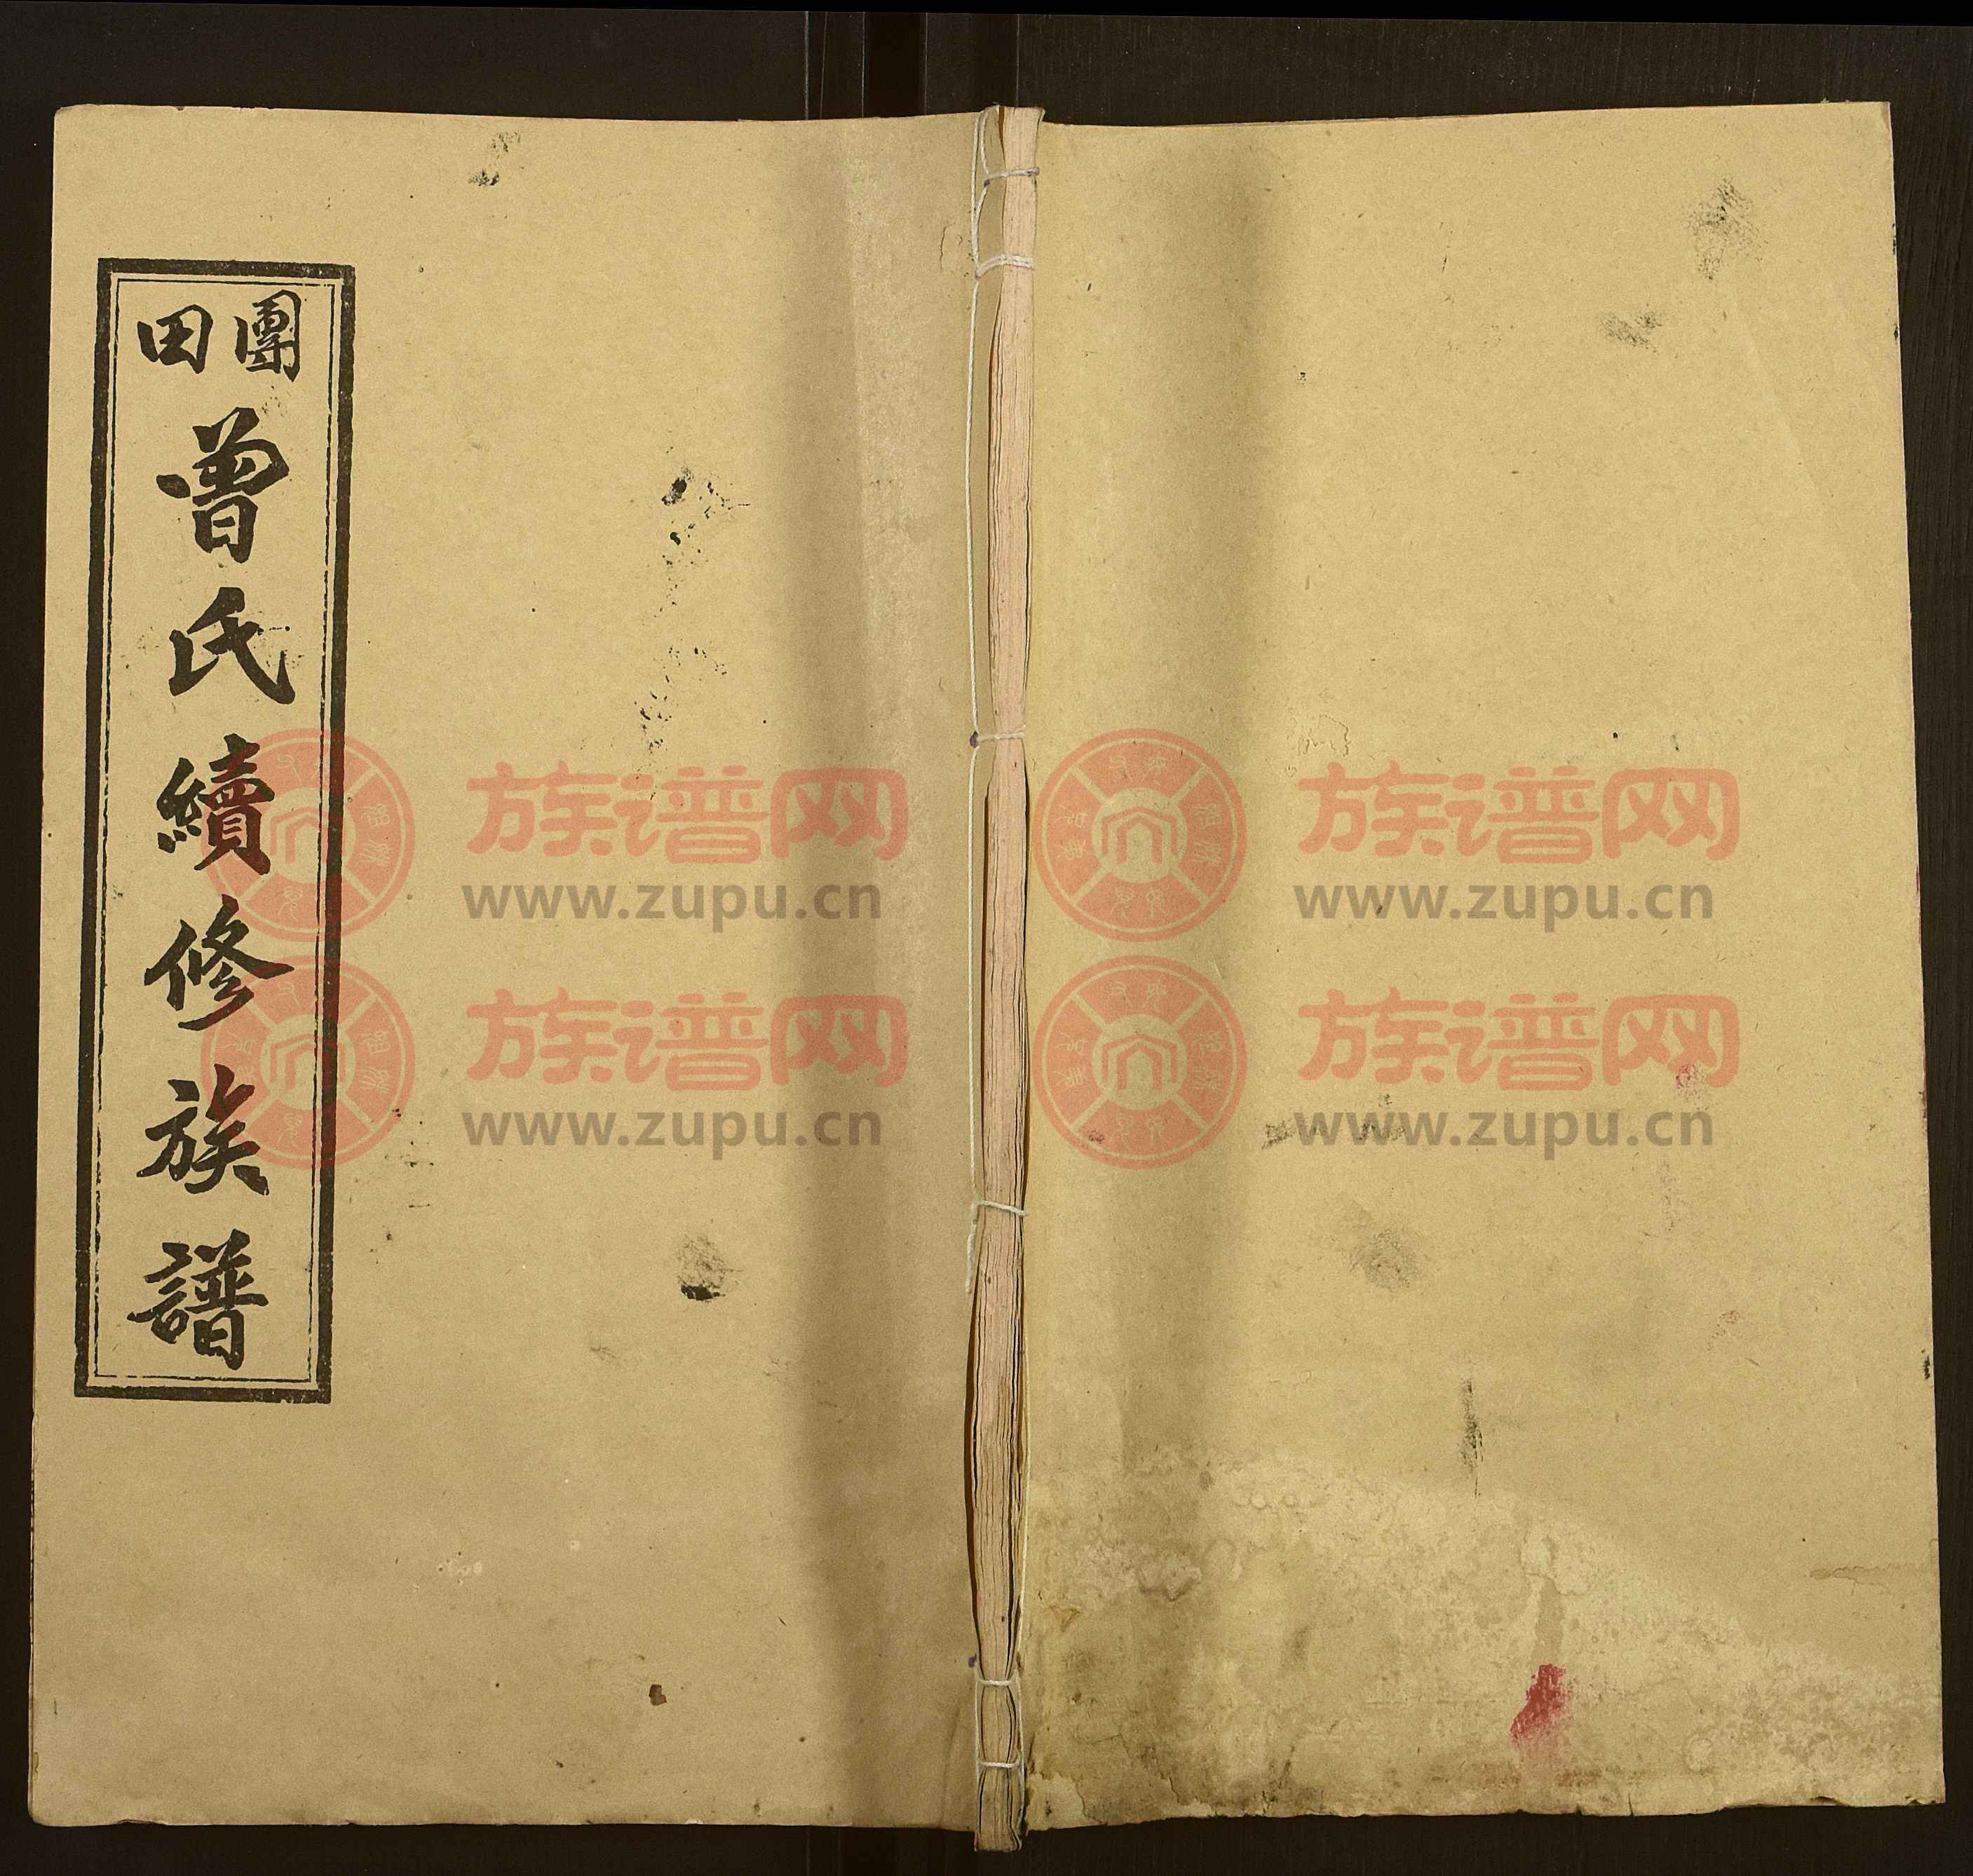 團田
曾氏續修族譜
族谱网
www.zupu.cn
族谱网
www.zupu.cn
族谱网
www.zupu.cn
族谱网
www.zupu.cn